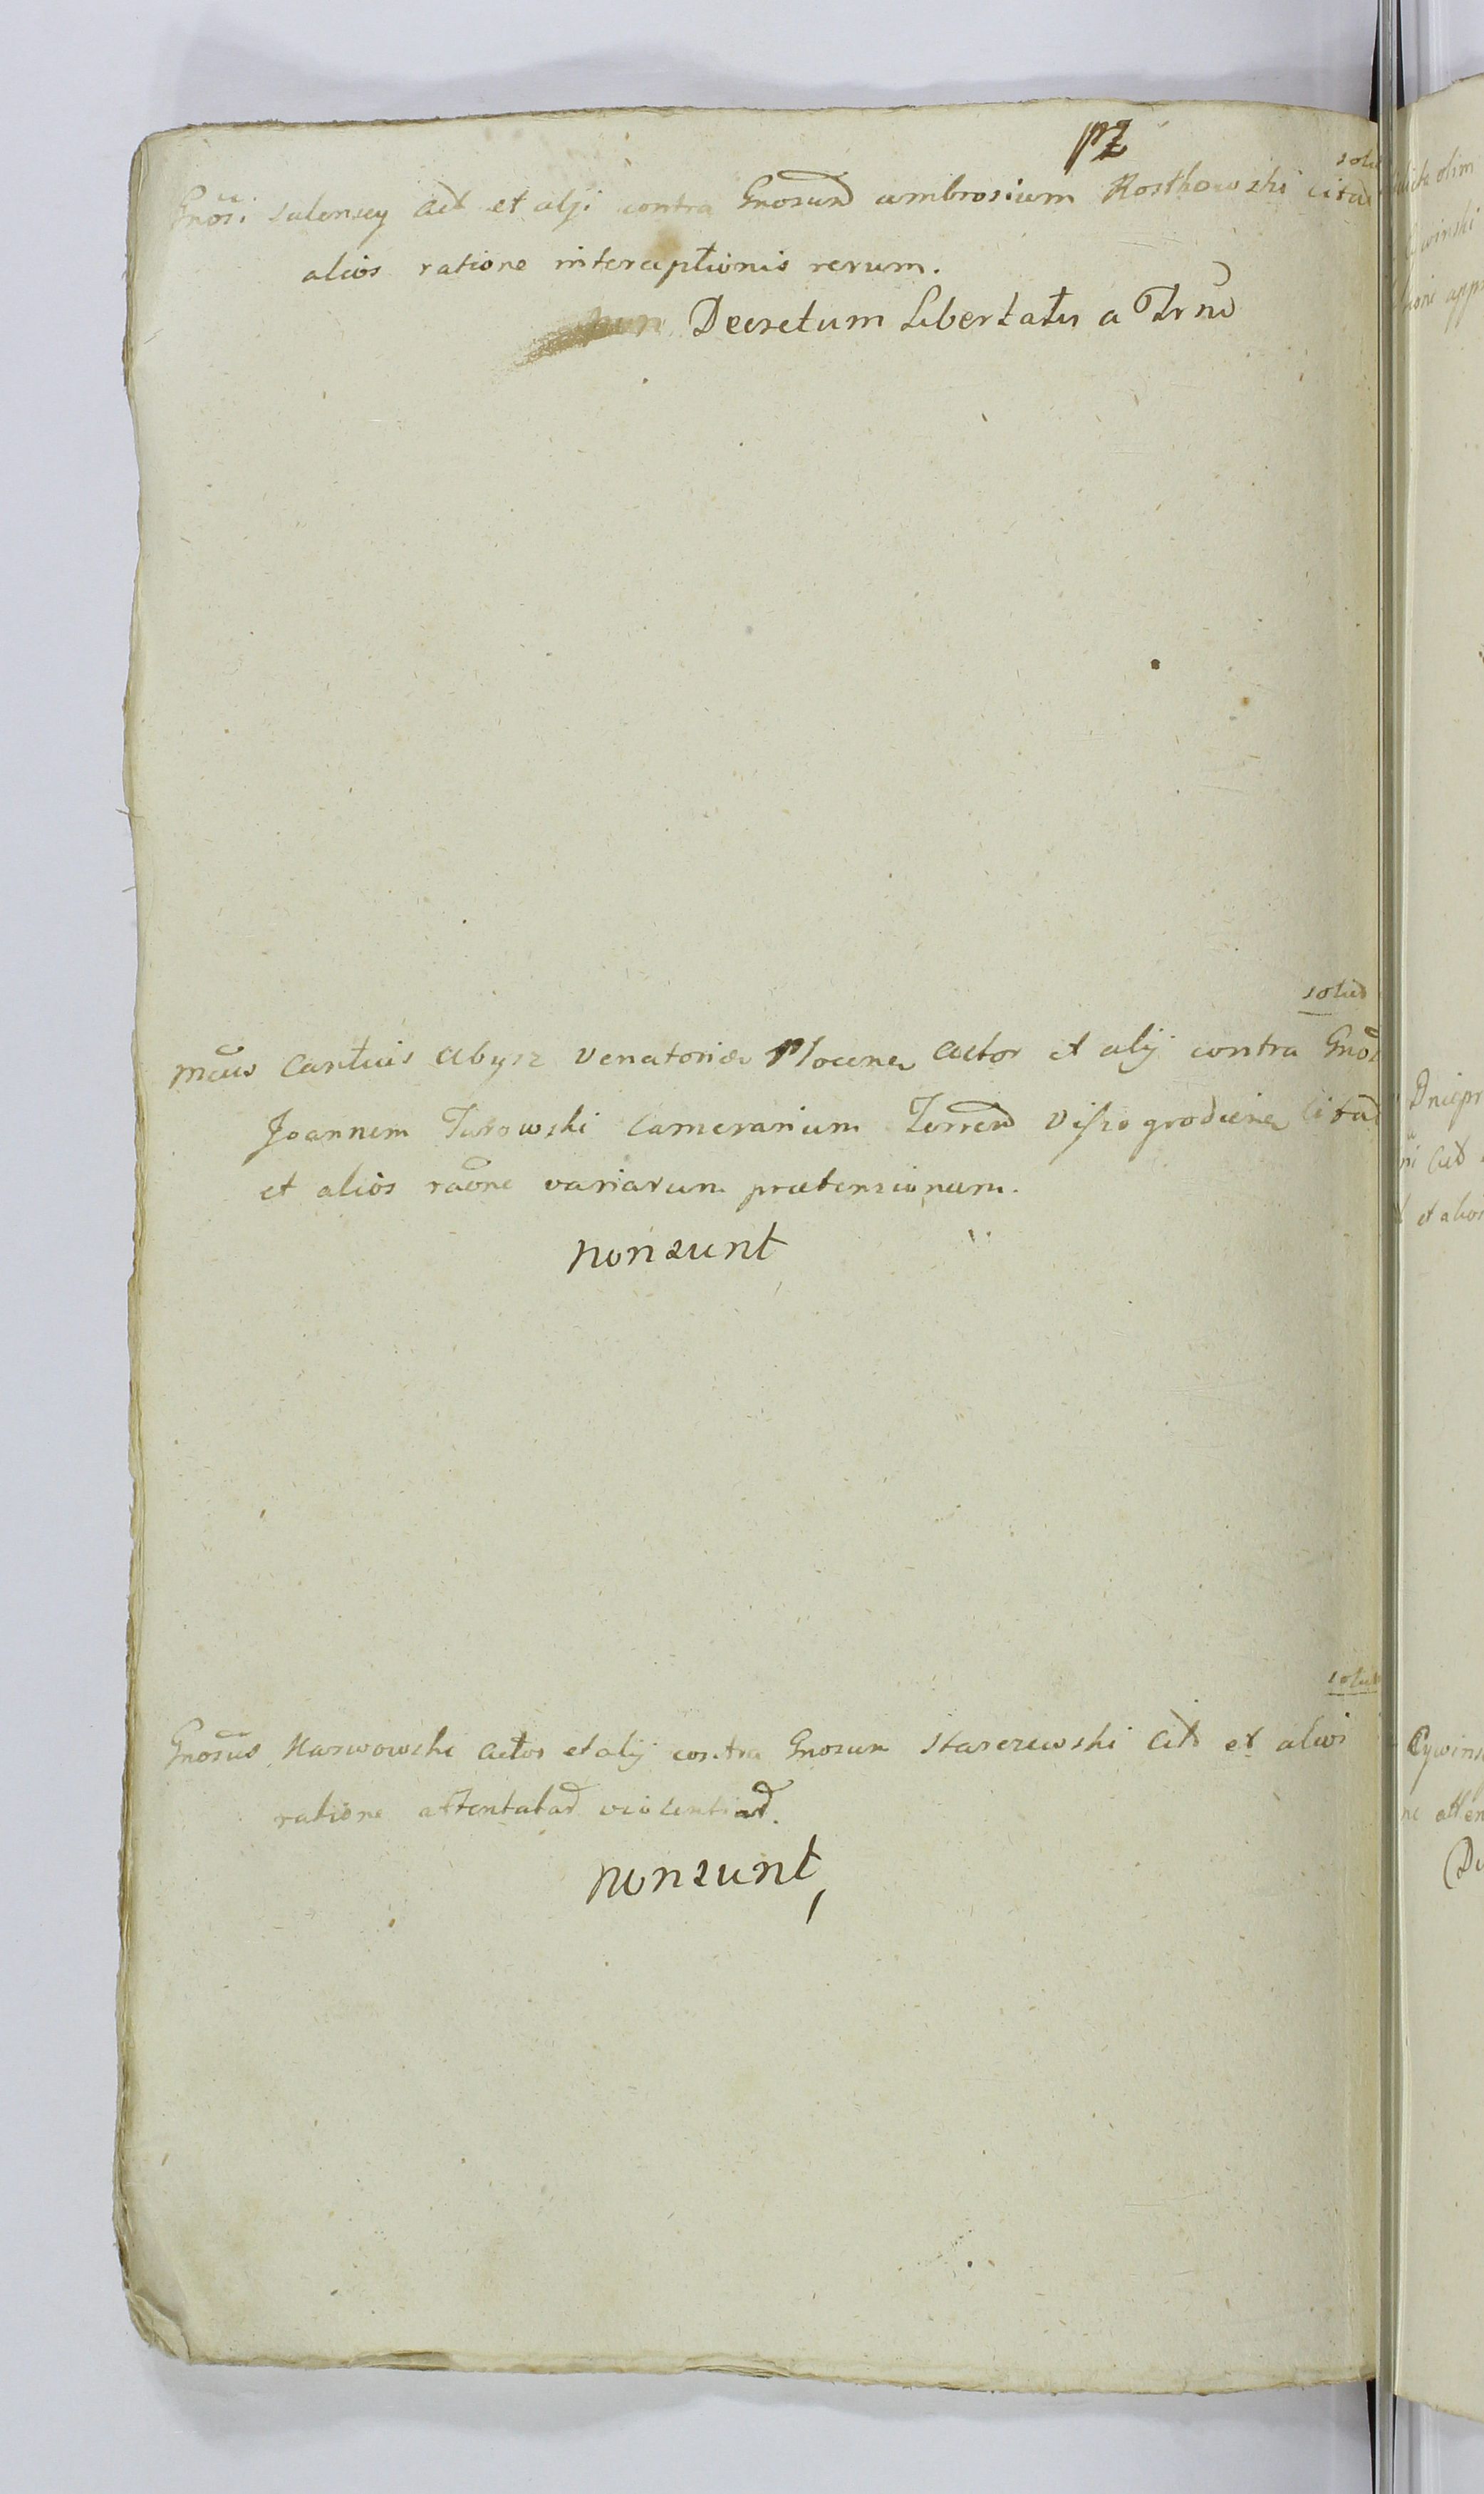 pz
solu
Gnosi Salensey Act et alji contra Gnosum ambrosium Rostkowski Citat
alios ratione interceptionis rerum.
Decretum Libertatis a Trno
solut
Mcus Cantius Abysz Venatorides Plocenes Actor et alij contra Gnos
Joannem Turowski Camerarium Terrend Viszogrodiens Citat
et alios raone variarum praetensionum.
non sunt
solut
Gnosus Narwowski Actor et alij contra Gnosum Starzewski Citt et alios
ratione attentatad violentiad.
non sunt
olim
winski
app
Dniepr
Act
et alios
Cywins
ne atten